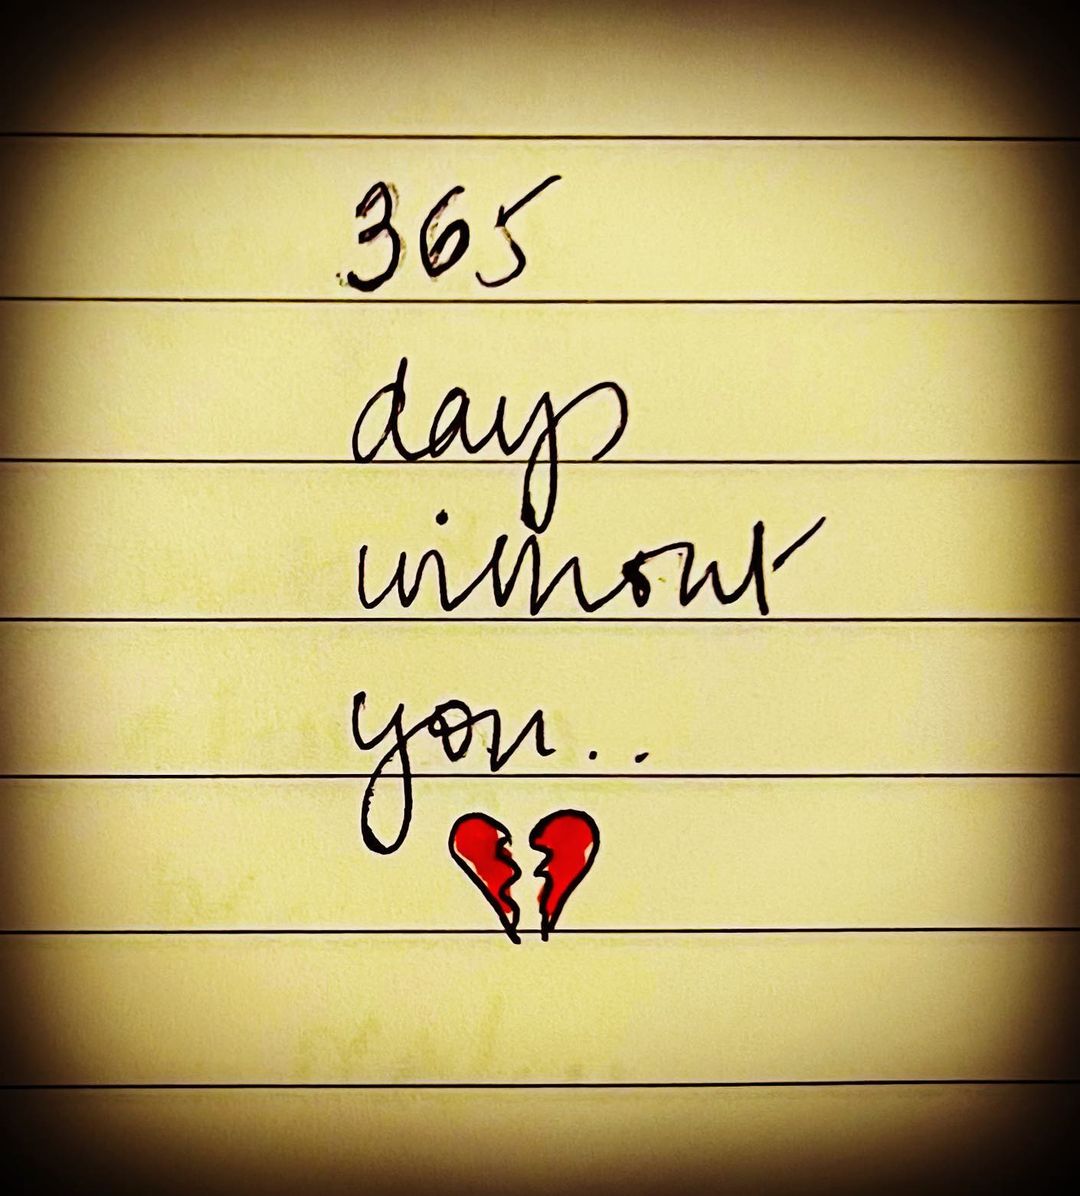 365
days
without
you..